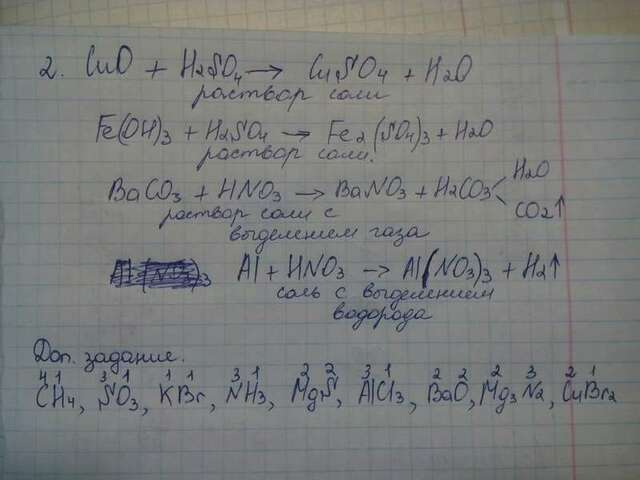 2. CuO + H2SO4 → CuSO4 + H2O
раствор соли
Fe(OH)3 + H2SO4 → Fe2(SO4)3 + H2O
раствор соли.
BaCO3 + HNO3 → BaNO3 + H2CO3 < H2O
CO2↑
раствор соли с
выделением газа
Al + HNO3 → Al(NO3)3 + H2↑
соль с выделением
водорода
Доп. задание.
4 1 3 1 1 1 3 1 2 2 3 1 2 2 2 3 2 1
CH4, SO3, KBr, NH3, MgS, AlCl3, BaO, Mg3N2, CuBr2